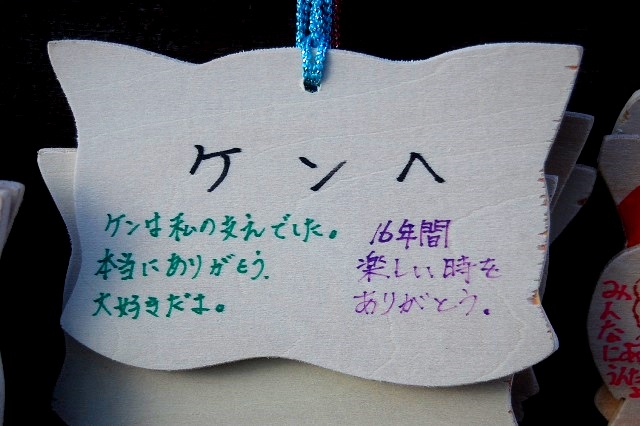 ケンへ
ケンは私の支えでした。
本当にありがとう。
大好きだよ。
16年間
楽しい時を
ありがとう。
みんなに